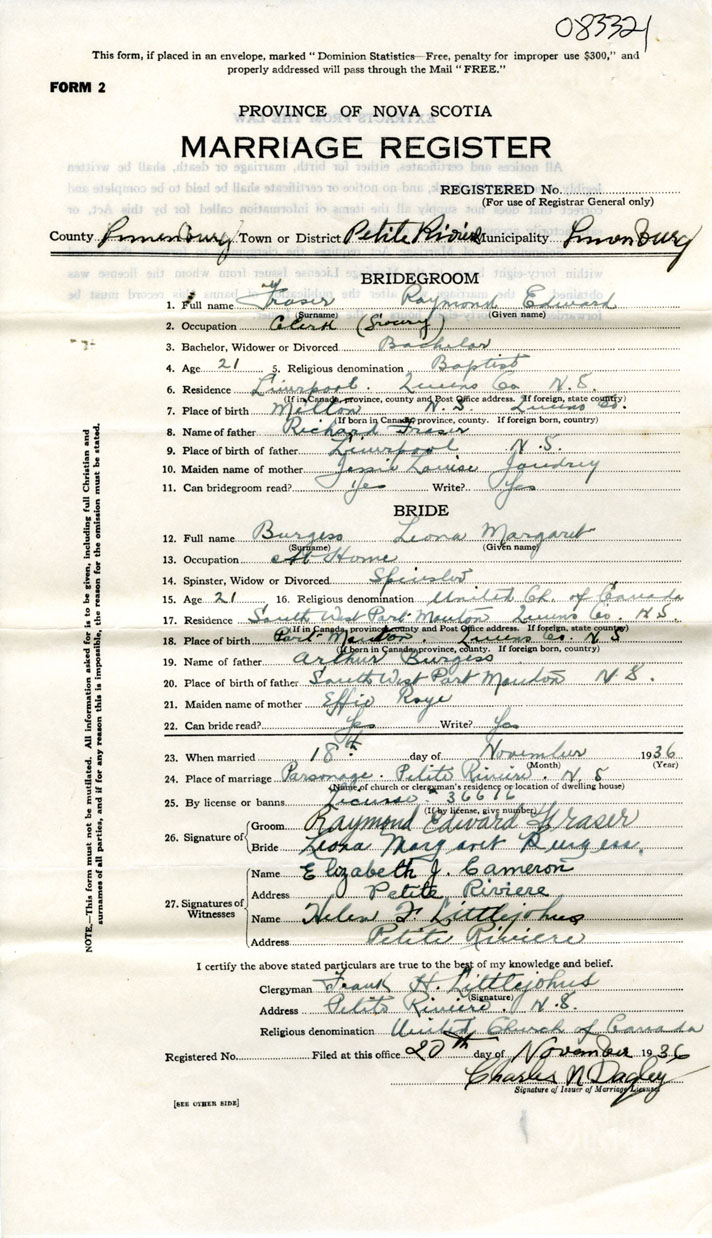 083321
This form, if placed in an envelope, marked "Dominion Statistics—Free, penalty for improper use $300," and
properly addressed will pass through the Mail "FREE."
FORM 2
PROVINCE OF NOVA SCOTIA
MARRIAGE REGISTER
REGISTERED No.
(For use of Registrar General only)
County Lunenburg Town or District Petite Riviere Municipality Lunenburg
BRIDEGROOM
1. Full name Fraser Raymond Edward
(Surname) (Given name)
2. Occupation Clerk
3. Bachelor, Widower or Divorced Bachelor
4. Age 21 5. Religious denomination Baptist
6. Residence Liverpool. Queens Co. N.S.
(If in Canada, province, county and Post Office address. If foreign, state country)
7. Place of birth Milton N.S. Queens Co.
(If born in Canada, province, county. If foreign born, country)
8. Name of father Richard Fraser
9. Place of birth of father Liverpool N.S.
10. Maiden name of mother Jessie Louise Joudrey
11. Can bridegroom read? Yes Write? Yes
BRIDE
12. Full name Burgess Leona Margaret
(Surname) (Given name)
13. Occupation At Home
14. Spinster, Widow or Divorced Spinster
15. Age 21 16. Religious denomination United Ch. of Canada
17. Residence South West Port Mouton Queens Co. N.S.
(If in Canada, province, county and Post Office address. If foreign, state country)
18. Place of birth Port Mouton. Queens Co. N.S
(If born in Canada, province, county. If foreign born, country)
19. Name of father Arthur Burgess
20. Place of birth of father South West Port Mouton N.S.
21. Maiden name of mother Effie Roye
22. Can bride read? Yes Write? Yes
23. When married 18th day of November 1936
(Month) (Year)
24. Place of marriage Parsonage. Petite Riviere. N.S
(Name of church or clergyman's residence or location of dwelling house)
25. By license or banns License - 36616
(If by license, give number)
26. Signature of Groom Raymond Edward Fraser
Bride Leona Margaret Burgess.
27. Signatures of Witnesses Name Elizabeth J. Cameron
Address Petite Riviere
Name Helen F Littlejohns
Address Petite Riviere
I certify the above stated particulars are true to the best of my knowledge and belief.
Clergyman Frank H. Littlejohns
(Signature)
Address Petite Riviere. N.S.
Religious denomination United Church of Canada
Registered No. Filed at this office 20th day of November 1936
Charles N Dagley
Signature of Issuer of Marriage Licenses
[SEE OTHER SIDE]
NOTE.—This form must not be mutilated. All information asked for is to be given, including full Christian and
surnames of all parties, and if for any reason this is impossible, the reason for the omission must be stated.